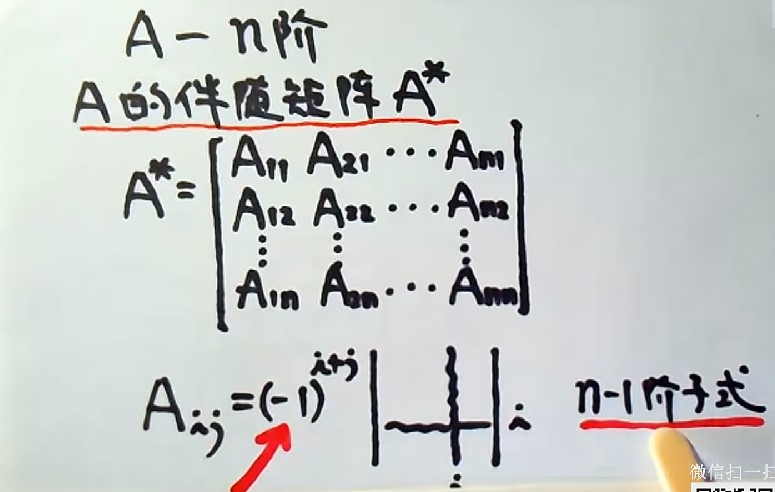 A - n阶
A的伴随矩阵 A*
A* = [ A₁₁ A₂₁ ··· Aₙ₁
A₁₂ A₂₂ ··· Aₙ₂
⋮ ⋮ ⋮
A₁ₙ A₂ₙ ··· Aₙₙ ]
Aᵢⱼ = (-1)ⁱ⁺ʲ | | i n-1阶子式
j
微信扫一扫